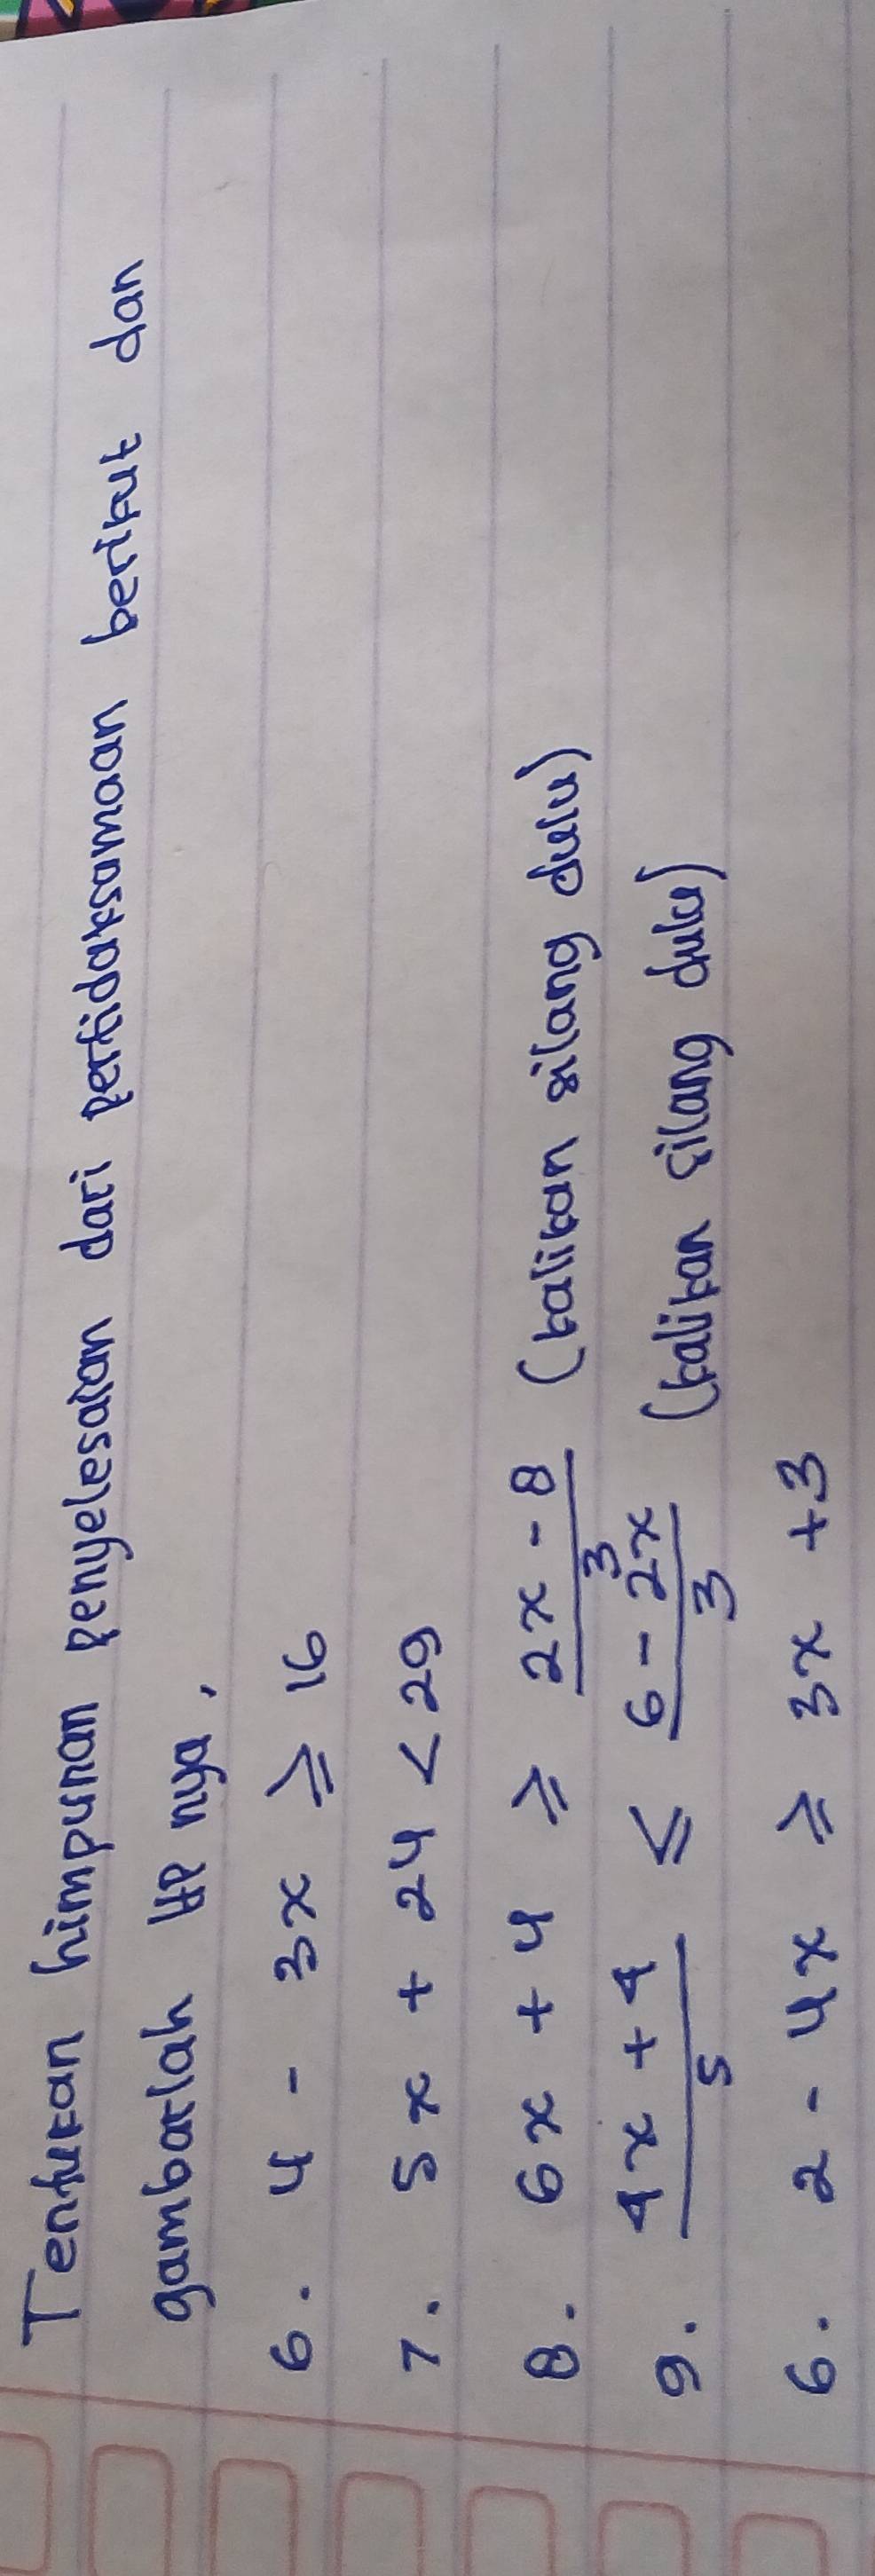 Tentukan himpunan penyelesaian dari pertidaksamaan berikut dan
gambarlah HP nya.
6. 4 - 3x ≥ 16
7. 5x + 24 < 29
8. 6x + 4 ≥ \frac{2x - 8}{3} (kalikan silang dulu)
9. \frac{4x + 4}{5} ≤ \frac{6 - 2x}{3} (kalikan silang dulu)
6. 2 - 4x ≥ 3x + 3